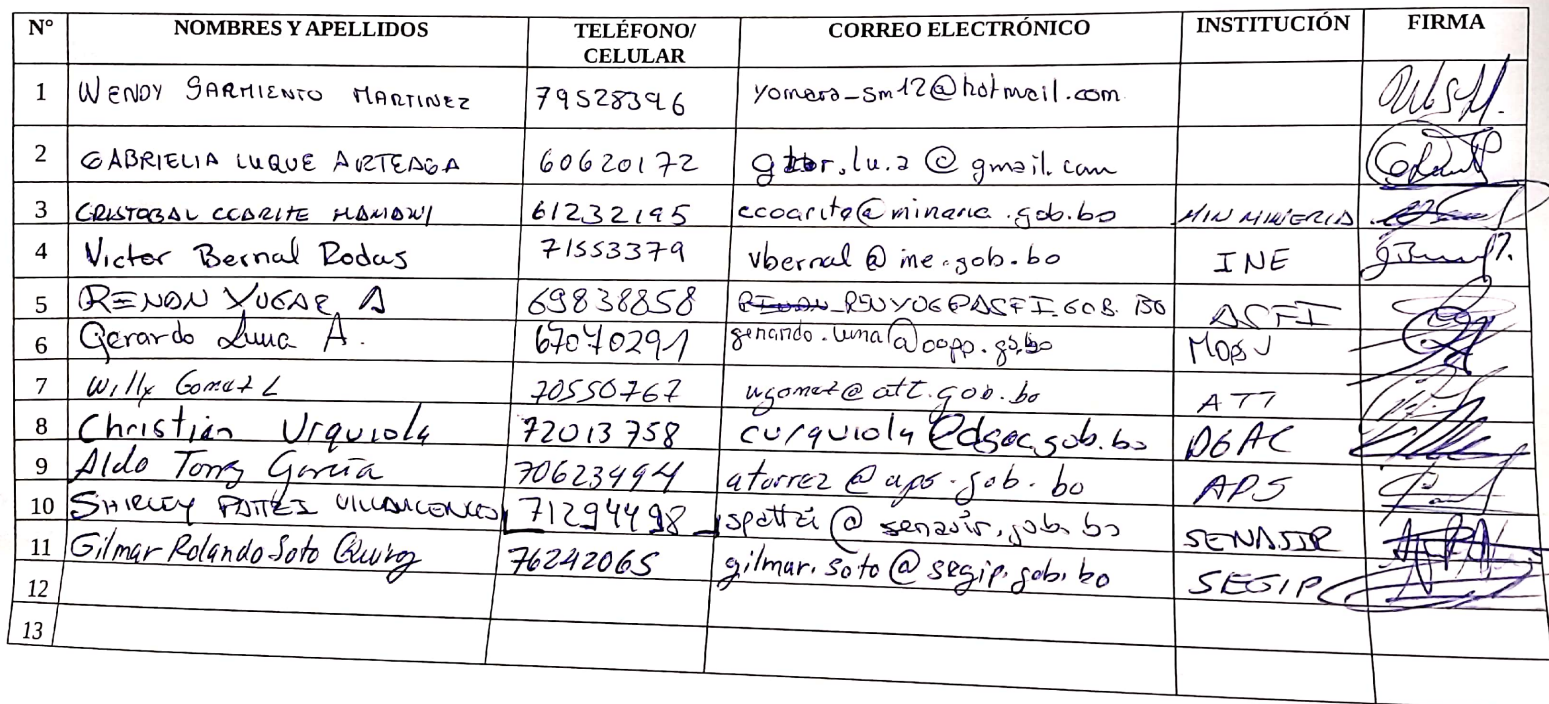 N° NOMBRES Y APELLIDOS TELÉFONO/ CELULAR CORREO ELECTRÓNICO INSTITUCIÓN FIRMA
1 WENDY SARMIENTO MARTINEZ 79528396 yomara_sm12@hotmail.com
2 GABRIELIA LUQUE 60620172 @gmail.com
3 CRISTOBAL CCARITE MAMANI 61232195 ccoarite@mineria.gob.bo MIN MINERIA
4 Victor Bernal Rodas 71553379 vbernal@ine.gob.bo INE
5 RENAN YUGAR A 69838858 ASFI
6 Gerardo Luna A. 67070291 gerardo.luna@oopp.gob.bo MOPSV
7 Willy Gomez L 70550767 wgomez@att.gob.bo ATT
8 Christian Urquiola 72013758 curquiola@dgac.gob.bo DGAC
9 Aldo Torrez García 70623494 atorrez@aps.gob.bo APS
10 SHIRLEY PATTZI 71294498 spattzi@senasir.gob.bo SENASIR
11 Gilmar Rolando Soto Quiroz 76242065 gilmar.soto@segip.gob.bo SEGIP
12
13